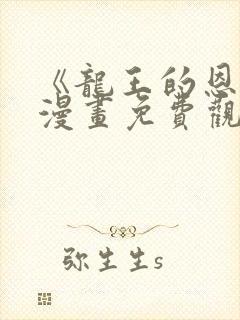 《龍王的恩
漫畫免費觀
弥生生s